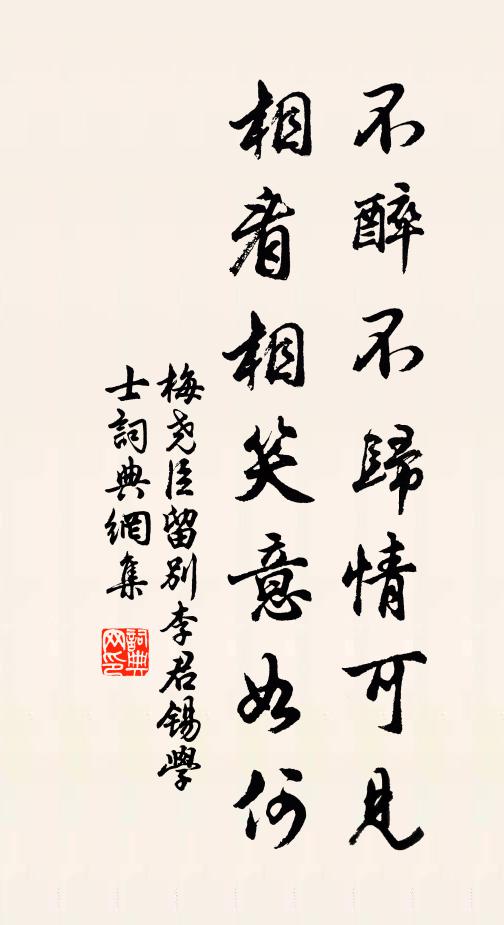 不醉不歸情可見
相看相笑意如何
梅堯臣留別李君錫學
士詞典網集
詞典網印